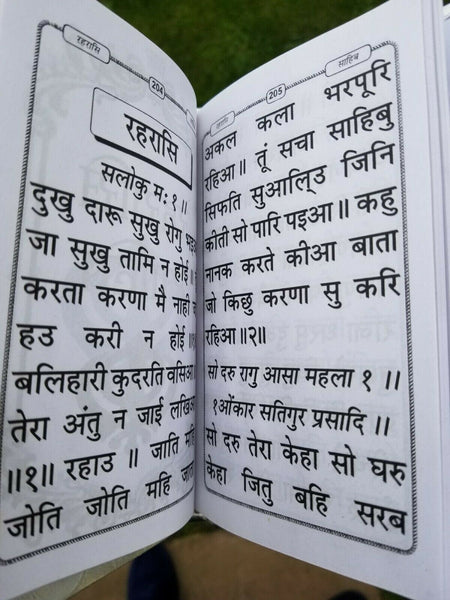 रहरासि
204
रहरासि
सलोकु मः १ ॥
दुखु दारू सुखु रोगु
जा सुखु तामि न होई
करता करणा मै नाही
हउ करी न होई
बलिहारी कुदरति वसिआ
तेरा अंतु न जाई लखिआ
॥१॥ रहाउ ॥ जाति महि
जोति जोति महि जाता
साहिब
205
अकल कला भरपूरि
रहिआ॥ तूं सचा साहिबु
सिफति सुआल्हिउ जिनि
कीती सो पारि पइआ॥ कहु
नानक करते कीआ बाता
जो किछु करणा सु करि
रहिआ॥२॥
सो दरु रागु आसा महला १ ॥
१ओंकार सतिगुर प्रसादि ॥
सो दरु तेरा केहा सो घरु
केहा जितु बहि सरब